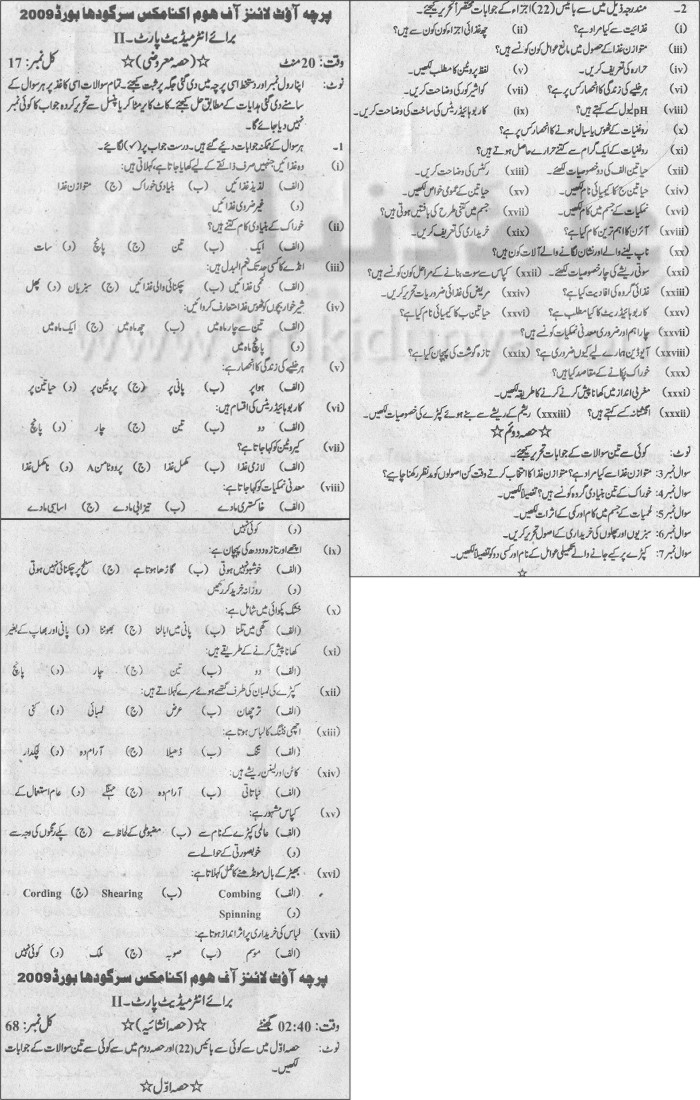 پرچہ آؤٹ لائنز آف ھوم اکنامکس سرگودھا بورڈ 2009
برائے انٹرمیڈیٹ پارٹ۔ II
وقت: 20 منٹ ☆(حصہ معروضی)☆ کل نمبر: 17
نوٹ: اپنا رول نمبر اور دستخط اسی پرچہ میں دی گئی جگہ پر ثبت کیجئے۔ تمام سوالات اسی کاغذ پر ہر سوال کے
سامنے دی گئی ہدایات کے مطابق حل کیجئے۔ کاٹ کر یا مٹا کر یا پنسل سے تحریر کردہ جواب کا کوئی نمبر
نہیں دیا جائے گا۔
1۔ ہر سوال کے ممکنہ جوابات دیئے گئے ہیں۔ درست جواب پر (✓) لگائیے۔
(i) وہ غذائیں جنہیں صرف ذائقے کے لیے کھایا جاتا ہے، کہلاتی ہیں:
(الف) لذیذ غذائیں (ب) بنیادی خوراک (ج) متوازن غذا
(د) غیر ضروری غذائیں
(ii) خوراک کے بنیادی کام کتنے ہیں؟
(الف) ایک (ب) تین (ج) پانچ (د) سات
(iii) انڈے کا کسی حد تک نعم البدل ہیں:
(الف) لحمی غذائیں (ب) چکنائی والی غذائیں (ج) سبزیاں (د) پھل
(iv) شیر خوار بچوں کو ٹھوس غذا متعارف کروائیں:
(الف) تین سے چار ماہ میں (ب) چھ ماہ میں (ج) ایک ماہ میں
(د) پانچ ماہ میں
(v) ہر خلیے کی زندگی کا انحصار ہے:
(الف) ہوا پر (ب) پانی پر (ج) پروٹین پر (د) حیاتین پر
(vi) کاربوہائیڈریٹس کی اقسام ہیں:
(الف) دو (ب) تین (ج) چار (د) پانچ
(vii) کیروٹین کو کہا جاتا ہے؟
(الف) لازمی غذا (ب) مکمل غذا (ج) پرووٹامن A (د) نامکمل غذا
(viii) معدنی نمکیات کو کہا جاتا ہے:
(الف) خاکستری مادے (ب) تیزابی مادے (ج) اساسی مادے
(د) کوئی نہیں
(ix) اچھے اور تازہ دودھ کی پہچان ہے:
(الف) خوشبو نہیں ہوتی (ب) گاڑھا ہوتا ہے (ج) سطح پر چکنائی نہیں ہوتی
(د) روزانہ خرید کر رکھیں
(x) خشک پکوائی میں شامل ہے:
(الف) گھی میں تلنا (ب) پانی میں ابالنا (ج) بھوننا (د) پانی اور بھاپ کے بغیر
(xi) کھانا پیش کرنے کے طریقے ہیں:
(الف) دو (ب) تین (ج) چار (د) پانچ
(xii) کپڑے کی لمبان کی طرف گھنے ہوئے سرے کہلاتے ہیں:
(الف) ترچھان (ب) عرض (ج) لمبائی (د) کنی
(xiii) اچھی فٹنگ کا لباس ہوتا ہے:
(الف) تنگ (ب) ڈھیلا (ج) آرام دہ (د) لچکدار
(xiv) کاٹن اور لینن ریشے ہیں:
(الف) نباتاتی (ب) آرام دہ (ج) مہنگے (د) عام استعمال کے
(xv) کپاس مشہور ہے:
(الف) عالمی کپڑے کے نام سے (ب) مضبوطی کے لحاظ سے (ج) پکے رنگوں کی وجہ سے
(د) خوبصورتی کے حوالے سے
(xvi) بھیڑ کے بال مونڈھنے کا عمل کہلاتا ہے:
(الف) Combing (ب) Shearing (ج) Cording
(د) Spinning
(xvii) لباس کی خریداری پر اثر انداز ہوتا ہے:
(الف) موسم (ب) صوبہ (ج) ملک (د) کوئی نہیں
پرچہ آؤٹ لائنز آف ھوم اکنامکس سرگودھا بورڈ 2009
برائے انٹرمیڈیٹ پارٹ۔ II
وقت: 02:40 گھنٹے ☆(حصہ انشائیہ)☆ کل نمبر: 68
نوٹ: حصہ اوّل میں سے کوئی سے بائیس (22) اور حصہ دوم میں سے کوئی سے تین سوالات کے جوابات
لکھیں۔
☆ حصہ اوّل ☆
2۔ مندرجہ ذیل میں سے بائیس (22) اجزاء کے جوابات مختصراً تحریر کیجئے۔
(i) غذائیت سے کیا مراد ہے؟ (ii) چھ غذائی اجزاء کون کون سے ہیں؟
(iii) متوازن غذا کے حصول میں مانع عوامل کون کونسے ہیں؟
(iv) حرارہ کی تعریف کریں۔ (v) لفظ پروٹین کا مطلب لکھیں۔
(vi) ہر خلیے کی زندگی کا انحصار کس پر ہے؟ (vii) کواشیرکور کی وضاحت کریں۔
(viii) pH لیول کسے کہتے ہیں؟ (ix) کاربوہائیڈریٹس کی ساخت کی وضاحت کریں۔
(x) روغنیات کے ٹھوس یا سیال ہونے کا انحصار کس پر ہے؟
(xi) روغنیات کے ایک گرام سے کتنے حرارے حاصل ہوتے ہیں؟
(xii) حیاتین الف کی دو خصوصیات لکھئے۔ (xiii) رکٹس کی وضاحت کریں۔
(xiv) حیاتین ج کا کیمیائی نام لکھیں۔ (xv) حیاتین کے عمومی خواص لکھیں۔
(xvi) نمکیات کے جسم میں کام لکھیں۔ (xvii) جسم میں کتنی طرح کی بافتیں ہوتی ہیں؟
(xviii) آئرن کا اہم ترین کام کیا ہے؟ (xix) خریداری کی تعریف کریں۔
(xx) ناپ لینے والے اور نشان لگانے والے آلات کون ہیں؟
(xxi) سوتی ریشے کی چار خصوصیات لکھئے۔ (xxii) کپاس سے سوت بنانے کے مراحل کون کونسے ہیں؟
(xxiii) غذائی گروہ کی افادیت کیا ہے؟ (xxiv) مریض کی غذائی ضروریات تحریر کریں۔
(xxv) کاربوہائیڈریٹ کا کیا مطلب ہے؟ (xxvi) حیاتین ب کا کیمیائی نام کیا ہے؟
(xxvii) چار اہم اور ضروری معدنی نمکیات کونسے ہیں؟
(xxviii) آیوڈین ہمارے لیے کیوں ضروری ہے؟ (xxix) تازہ گوشت کی پہچان کیا ہے؟
(xxx) خوراک پکانے کے مقاصد کیا ہیں؟
(xxxi) مغربی انداز میں کھانا پیش کرنے کا طریقہ لکھیں۔
(xxxii) انگشتانہ کسے کہتے ہیں؟ (xxxiii) ریشم کے ریشے سے بنے ہوئے کپڑے کی خصوصیات لکھیں۔
☆ حصہ دوئم ☆
نوٹ: کوئی سے تین سوالات کے جوابات تحریر کیجئے۔
سوال نمبر 3: متوازن غذا سے کیا مراد ہے؟ متوازن غذا کا انتخاب کرتے وقت کن اصولوں کو مدنظر رکھنا چاہیے؟
سوال نمبر 4: خوراک کے تین بنیادی گروہ کونسے ہیں؟ تفصیلاً لکھیں۔
سوال نمبر 5: لحمیات کے جسم میں کام اور کمی کے اثرات لکھیں۔
سوال نمبر 6: سبزیوں اور پھلوں کی خریداری کے اصول تحریر کریں۔
سوال نمبر 7: کپڑے پر کیے جانے والے تکمیلی عوامل کے نام اور کسی دو کو تفصیلاً لکھیں۔